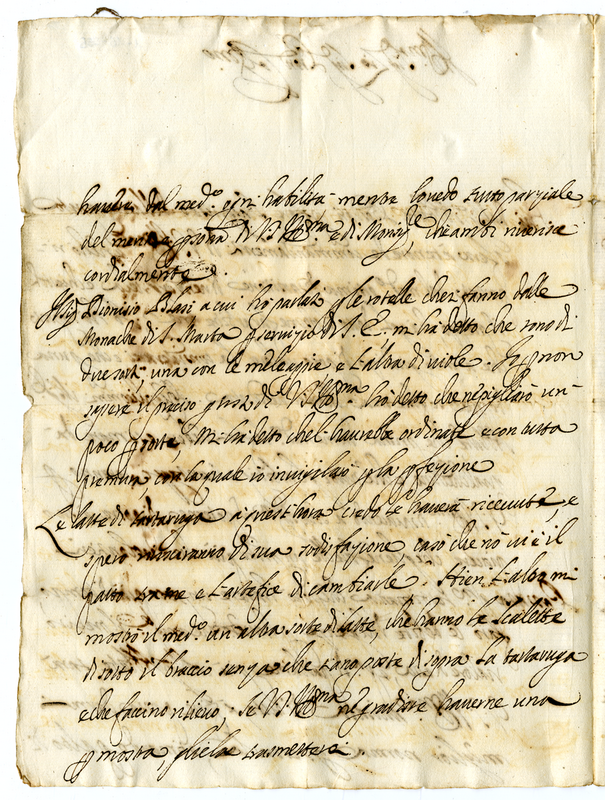 havere dal med.o ogni habilità mentre lo vedo tutto parziale
del merito e persona di V. S. Ill.ma e di Monsig.re, che ambi riverisce
cordialmente.
Il Sig. Dionisio Blasi a cui ho parlato per le rotelle che si fanno dalle
Monache di S. Marta per servizio di S. E. mi ha detto che sono di
due sorti, una con le meleappie e l'altra di viole. Io per non
sapere il preciso gusto di V. S. Ill.ma ho detto che ne pigliarò un
poco per sorte, mi ha detto che l'haverebbe ordinate e con tutta
premura, con la quale io invigilarò per la perfezione
Le latte di tartaruga a quest'hora credo le haverà ricevute, e
spero riusciranno di sua sodisfazione, caso che no vi è il
patto tra me e l'artefice di cambiarle. Hieri l'altro mi
mostrò il med.o un altra sorte di latte, che hanno le scalette
di sotto il braccio senza che siano poste di sopra la tartaruga
e che faccino rilievo, se V. S. Ill.ma ne gradisce haverne una
per mostra, gliela trasmetterò.